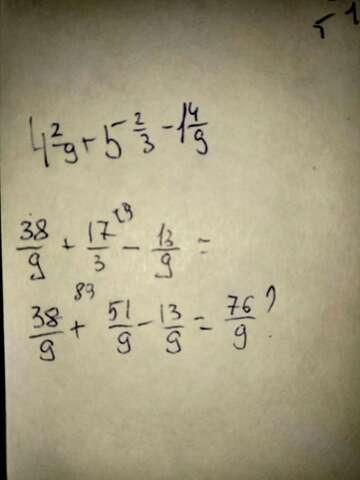 4 2/9 + 5 2/3 - 1 4/9
38/9 + 17/3 - 13/9 =
89
38/9 + 51/9 - 13/9 = 76/9 ?